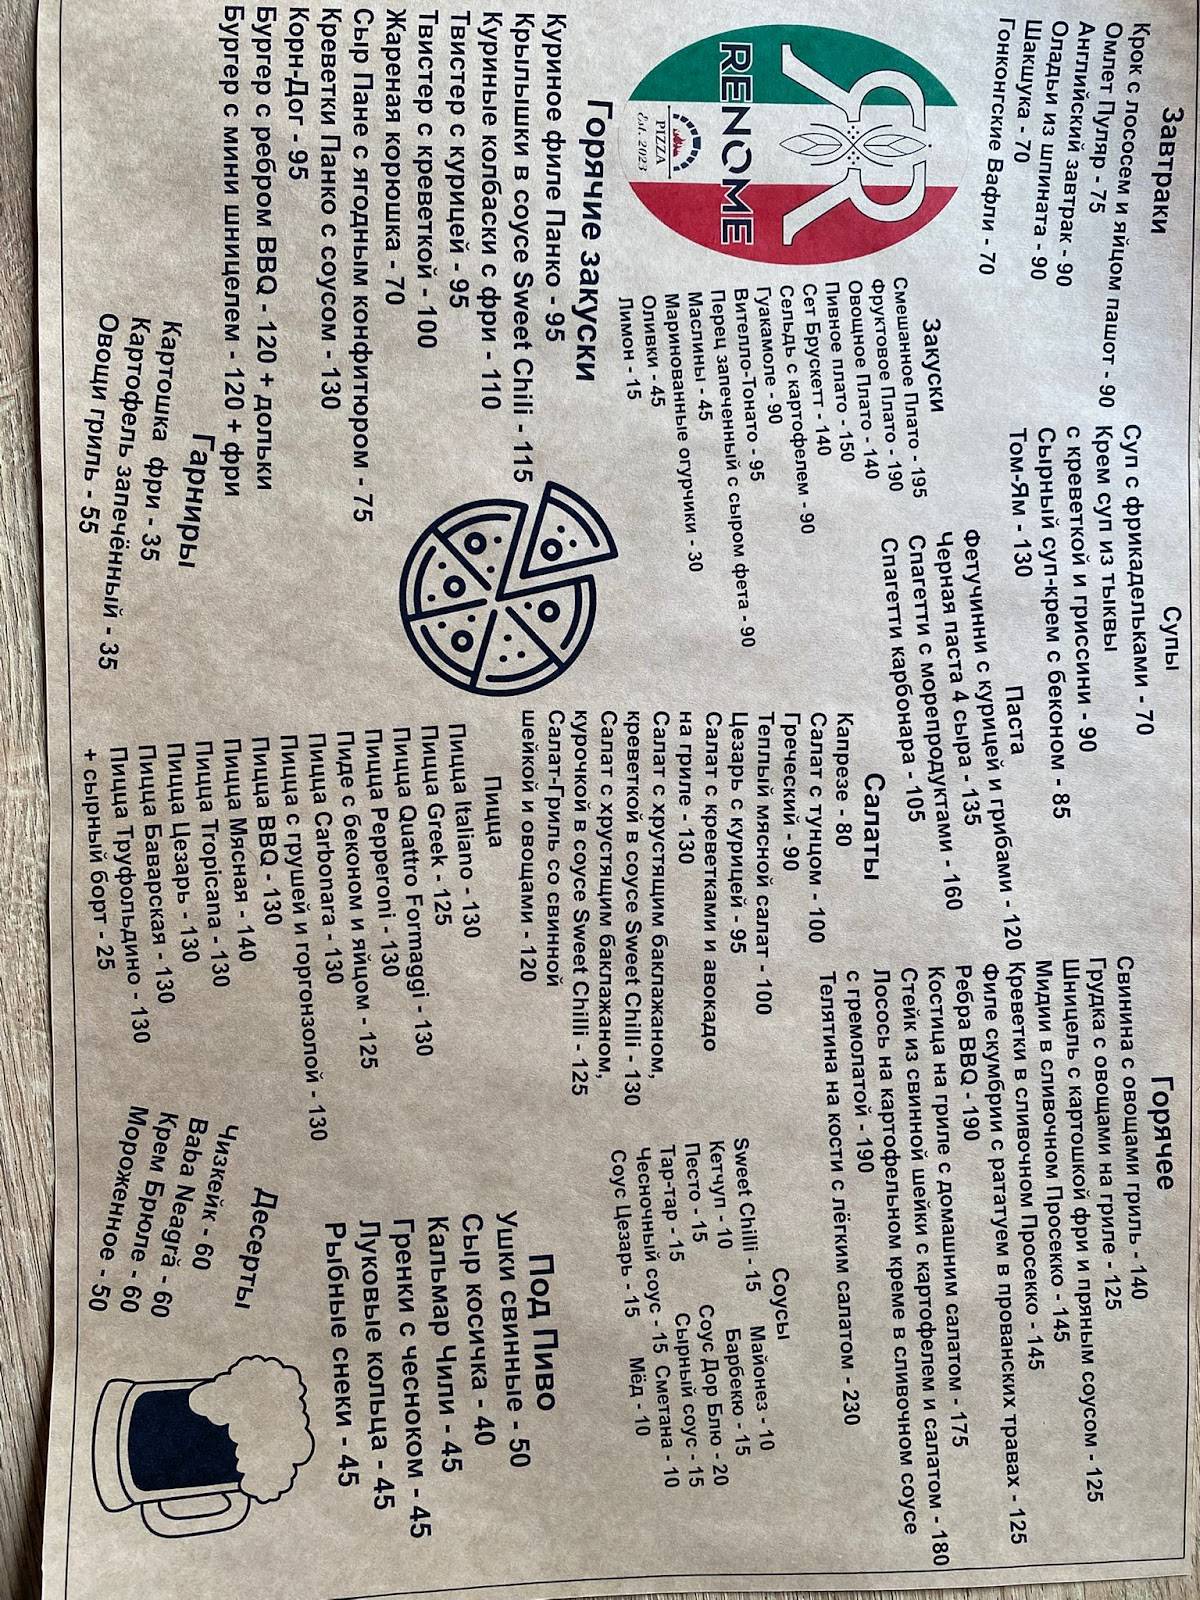 Завтраки
Крок с лососем и яйцом пашот - 90
Омлет Пуляр - 75
Английский завтрак - 90
Оладьи из шпината - 90
Шакшука - 70
Гонконгские Вафли - 70
Супы
Суп с фрикадельками - 70
Крем суп из тыквы
с креветкой и гриссини - 90
Сырный суп-крем с беконом - 85
Том-Ям - 130
Горячее
Свинина с овощами гриль - 140
Грудка с овощами на гриле - 125
Шницель с картошкой фри и пряным соусом - 125
Мидии в сливочном Просекко - 145
Креветки в сливочном Просекко - 145
Филе скумбрии с рататуем в прованских травах - 125
Ребра BBQ - 190
Костица на гриле с домашним салатом - 175
Стейк из свинной шейки с картофелем и салатом - 180
Лосось на картофельном креме в сливочном соусе
с гремолатой - 190
Телятина на кости с лёгким салатом - 230
RENOME
PIZZA
Est. 2023
Закуски
Смешанное Плато - 195
Фруктовое Плато - 190
Овощное Плато - 140
Пивное плато - 150
Сет Брускетт - 140
Сельдь с картофелем - 90
Гуакамоле - 90
Вителло-Тонато - 95
Перец запеченный с сыром фета - 90
Маслины - 45
Маринованные огурчики - 30
Оливки - 45
Лимон - 15
Паста
Фетучинни с курицей и грибами - 120
Черная паста 4 сыра - 135
Спагетти с морепродуктами - 160
Спагетти карбонара - 105
Салаты
Капрезе - 80
Салат с тунцом - 100
Греческий - 90
Теплый мясной салат - 100
Цезарь с курицей - 95
Салат с креветками и авокадо
на гриле - 130
Салат с хрустящим баклажаном,
креветкой в соусе Sweet Chilli - 130
Салат с хрустящим баклажаном,
курочкой в соусе Sweet Chilli - 125
Салат-Гриль со свинной
шейкой и овощами - 120
Соусы
Sweet Chilli - 15 Майонез - 10
Кетчуп - 10 Барбекю - 15
Песто - 15 Соус Дор Блю - 20
Тар-тар - 15 Сырный соус - 15
Чесночный соус - 15 Сметана - 10
Соус Цезарь - 15 Мёд - 10
Горячие закуски
Куриное филе Панко - 95
Крылышки в соусе Sweet Chili - 115
Куриные колбаски с фри - 110
Твистер с курицей - 95
Твистер с креветкой - 100
Жареная корюшка - 70
Сыр Пане с ягодным конфитюром - 75
Креветки Панко с соусом - 130
Корн-Дог - 95
Бургер с ребром BBQ - 120 + дольки
Бургер с мини шницелем - 120 + фри
Гарниры
Картошка фри - 35
Картофель запечённый - 35
Овощи гриль - 55
Пицца
Пицца Italiano - 130
Пицца Greek - 125
Пицца Quattro Formaggi - 130
Пицца Pepperoni - 130
Пиде с беконом и яйцом - 125
Пицца Carbonara - 130
Пицца с грушей и горгонзолой - 130
Пицца BBQ - 130
Пицца Мясная - 140
Пицца Tropicana - 130
Пицца Цезарь - 130
Пицца Баварская - 130
Пицца Труфольдино - 130
+ сырный борт - 25
Под Пиво
Ушки свинные - 50
Сыр косичка - 40
Кальмар Чили - 45
Гренки с чесноком - 45
Луковые кольца - 45
Рыбные снеки - 45
Десерты
Чизкейк - 60
Baba Neagră - 60
Крем Брюле - 60
Мороженное - 50